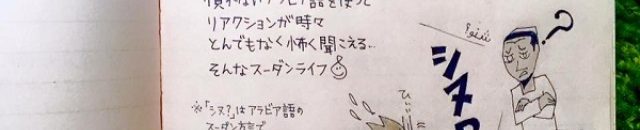 慣れないアラビア語を使って
リアクションが時々
とんでもなく怖く聞こえる…
そんなスーダンライフ
※「シヌ?」はアラビア語の
スーダン方言で
シヌ
?